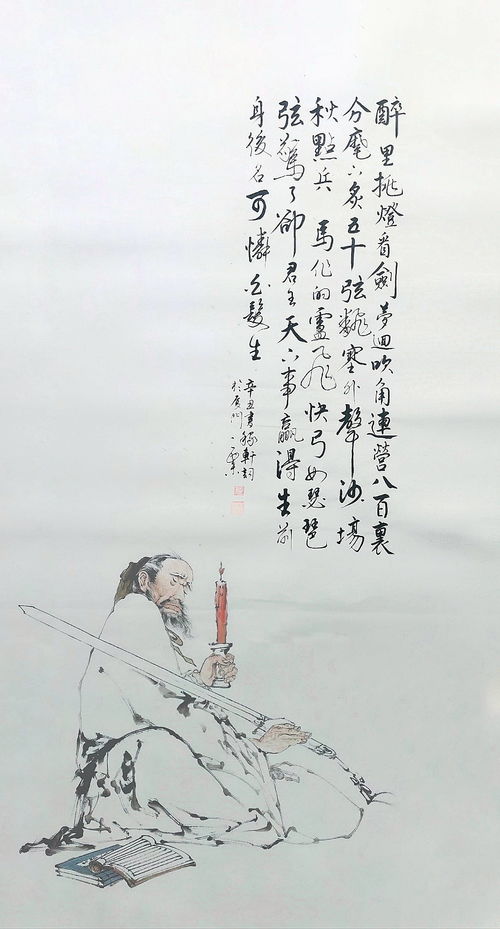 醉里挑燈看劍夢迴吹角連營八百裏
分麾下炙五十弦翻塞外聲沙場
秋點兵 馬作的盧飛快弓如霹靂
弦驚了卻君王天下事贏得生前
身後名可憐白髮生
辛丑書稼軒詞
於廈門